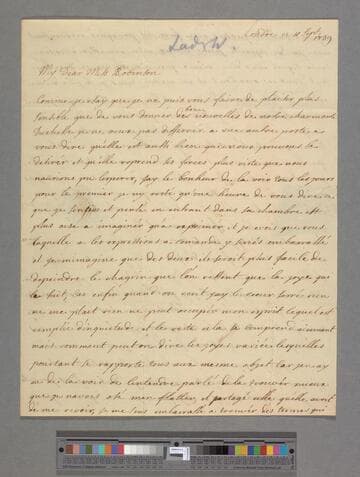 Londre ce 11 Sept 1739
Lady W.
My Dear Miss Robinson
Comme je sçay que je ne puis vous faire de plaisir plus
sensible que de vous donner des bonne nouvelles de notre charmante
Duchesse je ne veux pas differer a une autre poste a
vous dire quelle est aussi bien que nous pouvons le
desirer et quelle reprend ses forces plus viste que nous
naurions pu lesperer, jay le bonheur de la voir tous les jours
pour le premier je ny reste qu'une heure de vous dire ce
que je sentis et pensee en entrant dans sa chambre est
plus aise a imaginer qua exprimer et je vois que vous
laquelle a les expressions a comande y seriés embarassée
et je m'imagine que des deux il seroit plus facile de
depeindre le chagrin que lon ressent que la joye que
le fait, car enfin quant on voit jay le coeur serré rien
ne me plait rien ne peut occuper mon esprit lequel est
remplie d'inquietude et le reste cela se comprend aisement
mais comment peut on dire les joyes variées lesquelles
pourtant se rapporte tous au mesme objet car jen ay
eu de la voir de lentendre parlé de la trouver mieux
que je navois osé men flatter et partagé celle quelle avoit
de me revoir, je me suis embarassée a trouver des termes qui